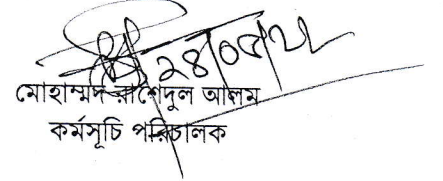 ২৪/০৫/২১
মোহাম্মদ রাশেদুল আলম
কর্মসূচি পরিচালক